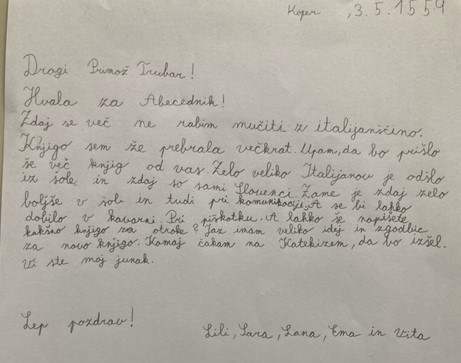 Koper, 3.5.1559
Dragi Primož Trubar!
Hvala za Abecednik!
Zdaj se več ne rabim mučiti z italijanščino.
Knjigo sem že prebrala večkrat. Upam, da bo prišlo
še več knjig od vas. Zelo veliko Italijanov je odšlo
iz šole in zdaj so sami Slovenci. Zame je zdaj zelo
boljše v šoli in tudi pri komunikaciji. A se bi lahko
dobilo v kavarni Pri piškotku. A lahko še napišete
kakšno knjigo za otroke? Jaz imam veliko idej in zgodbic
za novo knjigo. Komaj čakam na Katekizem, da bo izšel.
Vi ste moj junak.
Lep pozdrav!
Lili, Sara, Lana, Ema in Vita